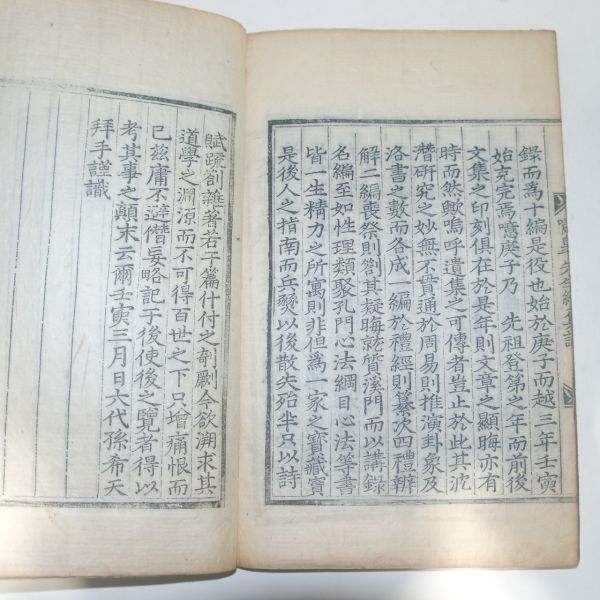 錄而爲十編是役也始於庚子而越三年壬寅
始克完焉噫庚子乃 先祖登第之年而前後
文集之印刻俱在於是年則文章之顯晦亦有
時而然歟嗚呼遺集之可傳者豈止於此其沈
潛硏究之妙無不貫通於周易則推演卦象及
洛書之數而各成一編於禮經則纂次四禮辨
解二編喪祭則劄其疑晦就質溪門而以講錄
名編至如性理類聚孔門心法綱目心法等書
皆一生精力之所寓則非但爲一家之寶藏實
是後人之指南而兵燹以後散失殆半只以詩
賦疏劄雜著若干篇什付之剞劂今欲溯求其
道學之淵源而不可得百世之下只增痛恨而
已茲庸不避僭妄略記于後使後之覽者得以
考其事之顚末云爾壬寅三月日六代孫希天
拜手謹識